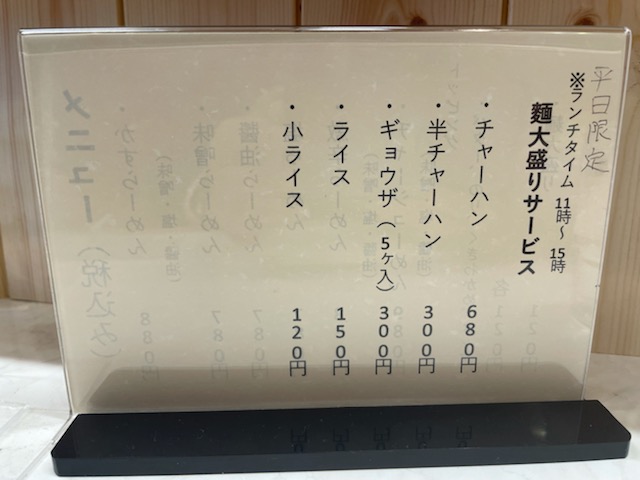 平日限定
※ランチタイム 11時～15時
麺大盛りサービス
・チャーハン 680円
・半チャーハン 300円
・ギョウザ(5ヶ入) 300円
・ライス 150円
・小ライス 120円